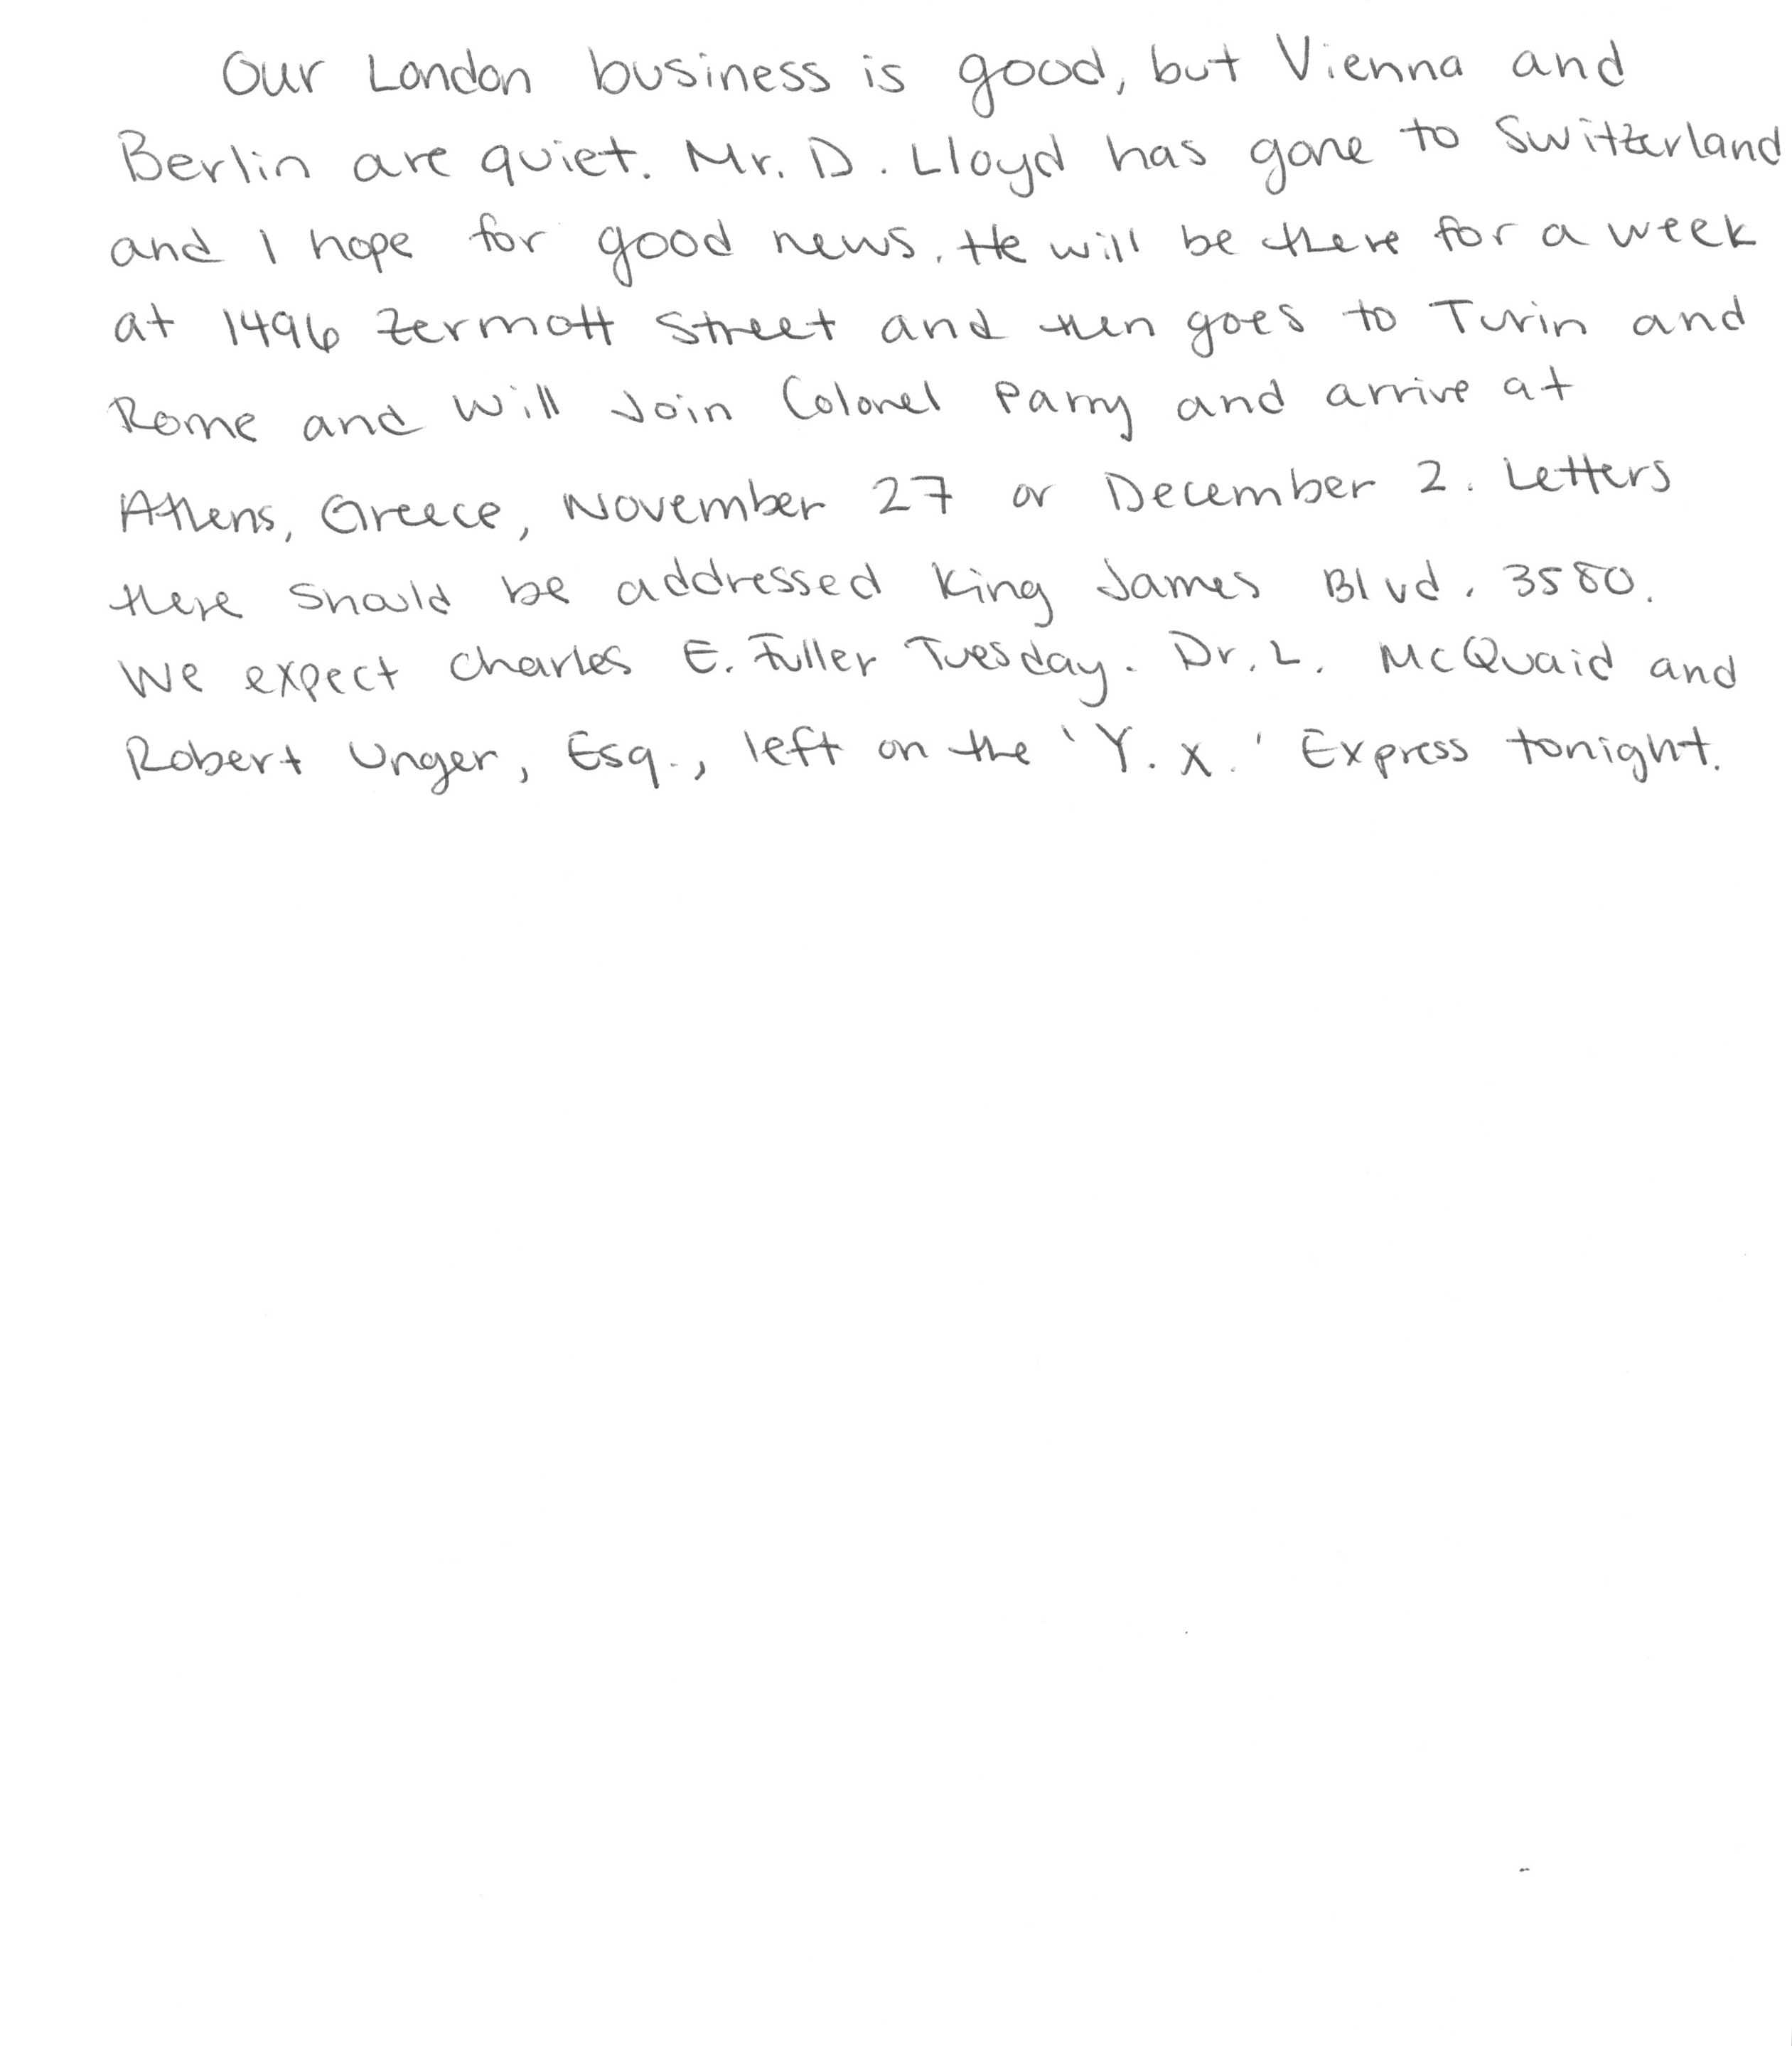 Our London business is good, but Vienna and
Berlin are quiet. Mr. D. Lloyd has gone to Switzerland
and I hope for good news. He will be there for a week
at 1496 Zermott Street and then goes to Turin and
Rome and will join Colonel Parry and arrive at
Athens, Greece, November 27 or December 2. Letters
there should be addressed King James Blvd. 3580.
We expect Charles E. Fuller Tuesday. Dr. L. McQuaid and
Robert Unger, Esq., left on the 'Y. X.' Express tonight.